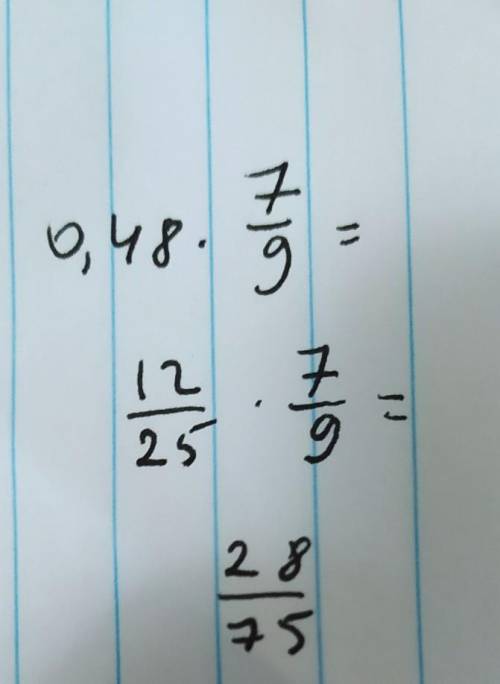 0,48 · 7/9 =
12/25 · 7/9 =
28/75